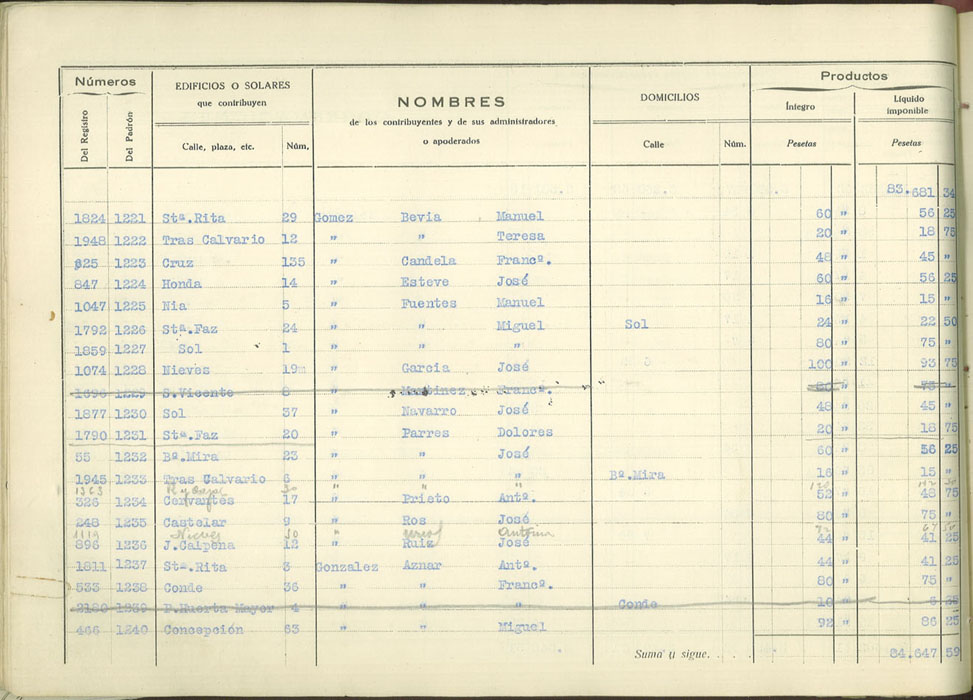 Números EDIFICIOS O SOLARES que contribuyen NOMBRES de los contribuyentes y de sus administradores o apoderados DOMICILIOS Productos
Del Registro Del Padrón Calle, plaza, etc. Núm. Calle Núm. Íntegro Pesetas Líquido imponible Pesetas
83.681 34
1824 1221 Stª.Rita 29 Gomez Bevia Manuel 60 " 56 25
1948 1222 Tras Calvario 12 " " Teresa 20 " 18 75
825 1223 Cruz 135 " Candela Francº. 48 " 45 "
847 1224 Honda 14 " Esteve José 60 " 56 25
1047 1225 Nia 5 " Fuentes Manuel 16 " 15 "
1792 1226 Stª.Faz 24 " " Miguel Sol 24 " 22 50
1859 1227 Sol 1 " " " 80 " 75 "
1074 1228 Nieves 19 " Garcia José 100 " 93 75
1696 1229 S.Vicente 8 " Martinez Francº. " " 80 " 75 "
1877 1230 Sol 37 " Navarro José 48 " 45 "
1790 1231 Stª.Faz 20 " Parres Dolores 20 " 18 75
55 1232 Bª.Mira 23 " " José 60 " 56 25
1945 1233 Tras Calvario 6 " " " Bª.Mira 16 " 15 "
1363 " " "
326 1234 Cervantes 17 " Prieto Antº. 52 " 48 75
248 1235 Castelar 9 " Ros José 80 " 75 "
1119 Nieves 50 " Antonia 72 67 50
896 1236 J.Calpena 12 " Ruiz José 44 " 41 25
1811 1237 Stª.Rita 3 Gonzalez Aznar Antº. 44 " 41 25
533 1238 Conde 36 " " Francº. 80 " 75 "
2180 1239 P.Huerta Mayor 4 " " " Conde 10 "
466 1240 Concepción 63 " " Miguel 92 " 86 25
Suma y sigue. . . . 84.647 59